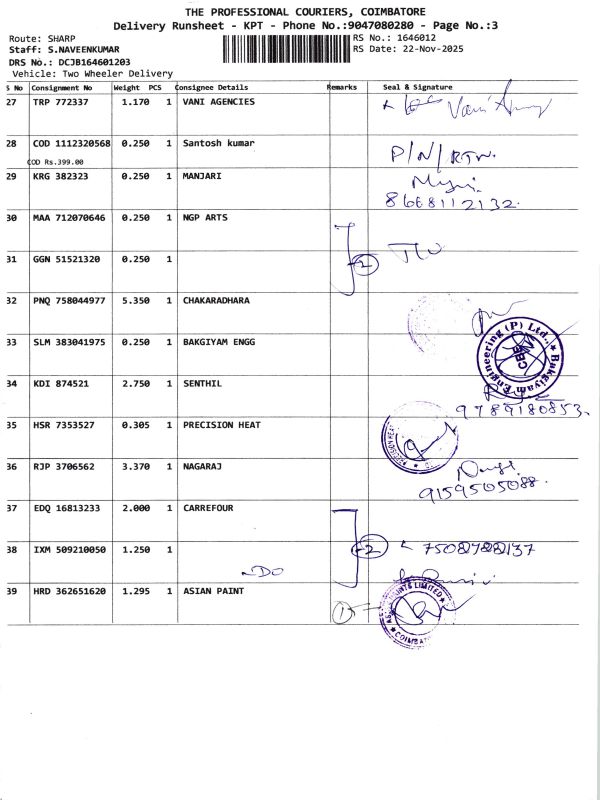 THE PROFESSIONAL COURIERS, COIMBATORE
Delivery Runsheet - KPT - Phone No.:9047080280 - Page No.:3
Route: SHARP RS No.: 1646012
Staff: S.NAVEENKUMAR RS Date: 22-Nov-2025
DRS No.: DCJB164601203
Vehicle: Two Wheeler Delivery
S No Consignment No Weight PCS Consignee Details Remarks Seal & Signature
27 TRP 772337 1.170 1 VANI AGENCIES Vani
28 COD 1112320568 0.250 1 Santosh kumar P/N/RTN.
COD Rs.399.00
29 KRG 382323 0.250 1 MANJARI
8668112132.
30 MAA 712070646 0.250 1 NGP ARTS
31 GGN 51521320 0.250 1 2
32 PNQ 758044977 5.350 1 CHAKARADHARA
33 SLM 383041975 0.250 1 BAKGIYAM ENGG
Bakgiyam Engineering (P) Ltd., CBE
34 KDI 874521 2.750 1 SENTHIL
9789180853.
35 HSR 7353527 0.305 1 PRECISION HEAT
PRECISION HEAT
36 RJP 3706562 3.370 1 NAGARAJ
9159505088.
37 EDQ 16813233 2.000 1 CARREFOUR
38 IXM 509210050 1.250 1 2
DO
39 HRD 362651620 1.295 1 ASIAN PAINT
PAINTS LIMITED